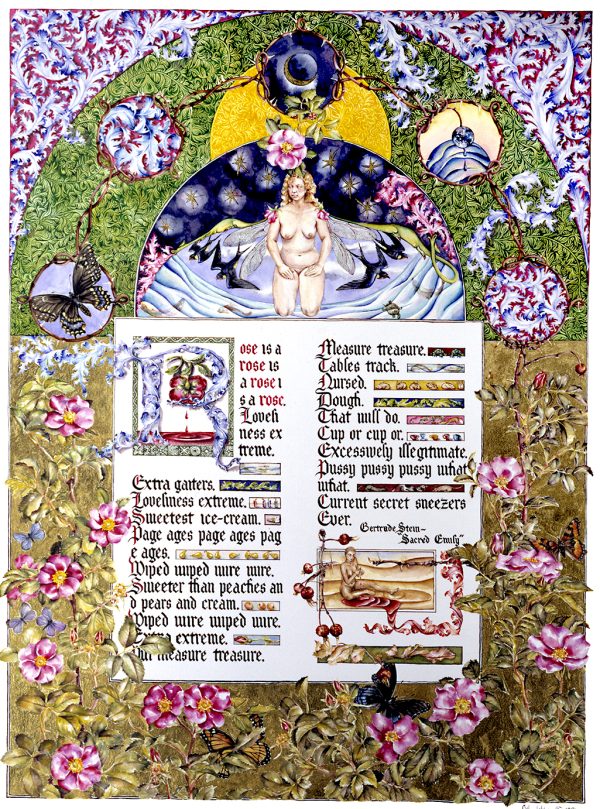 Rose is a
rose is
a rose i
s a rose.
Loveli
ness ex
treme.
Extra gaiters.
Loveliness extreme.
Sweetest ice-cream.
Page ages page ages pag
e ages.
Wiped wiped wire wire.
Sweeter than peaches an
d pears and cream.
Wiped wire wiped wire.
Extra extreme.
Put measure treasure.
Measure treasure.
Tables track.
Nursed.
Dough.
That will do.
Cup or cup or.
Excessively illegitimate.
Pussy pussy pussy what
what.
Current secret sneezers
Ever.
Gertrude Stein-
"Sacred Emily"